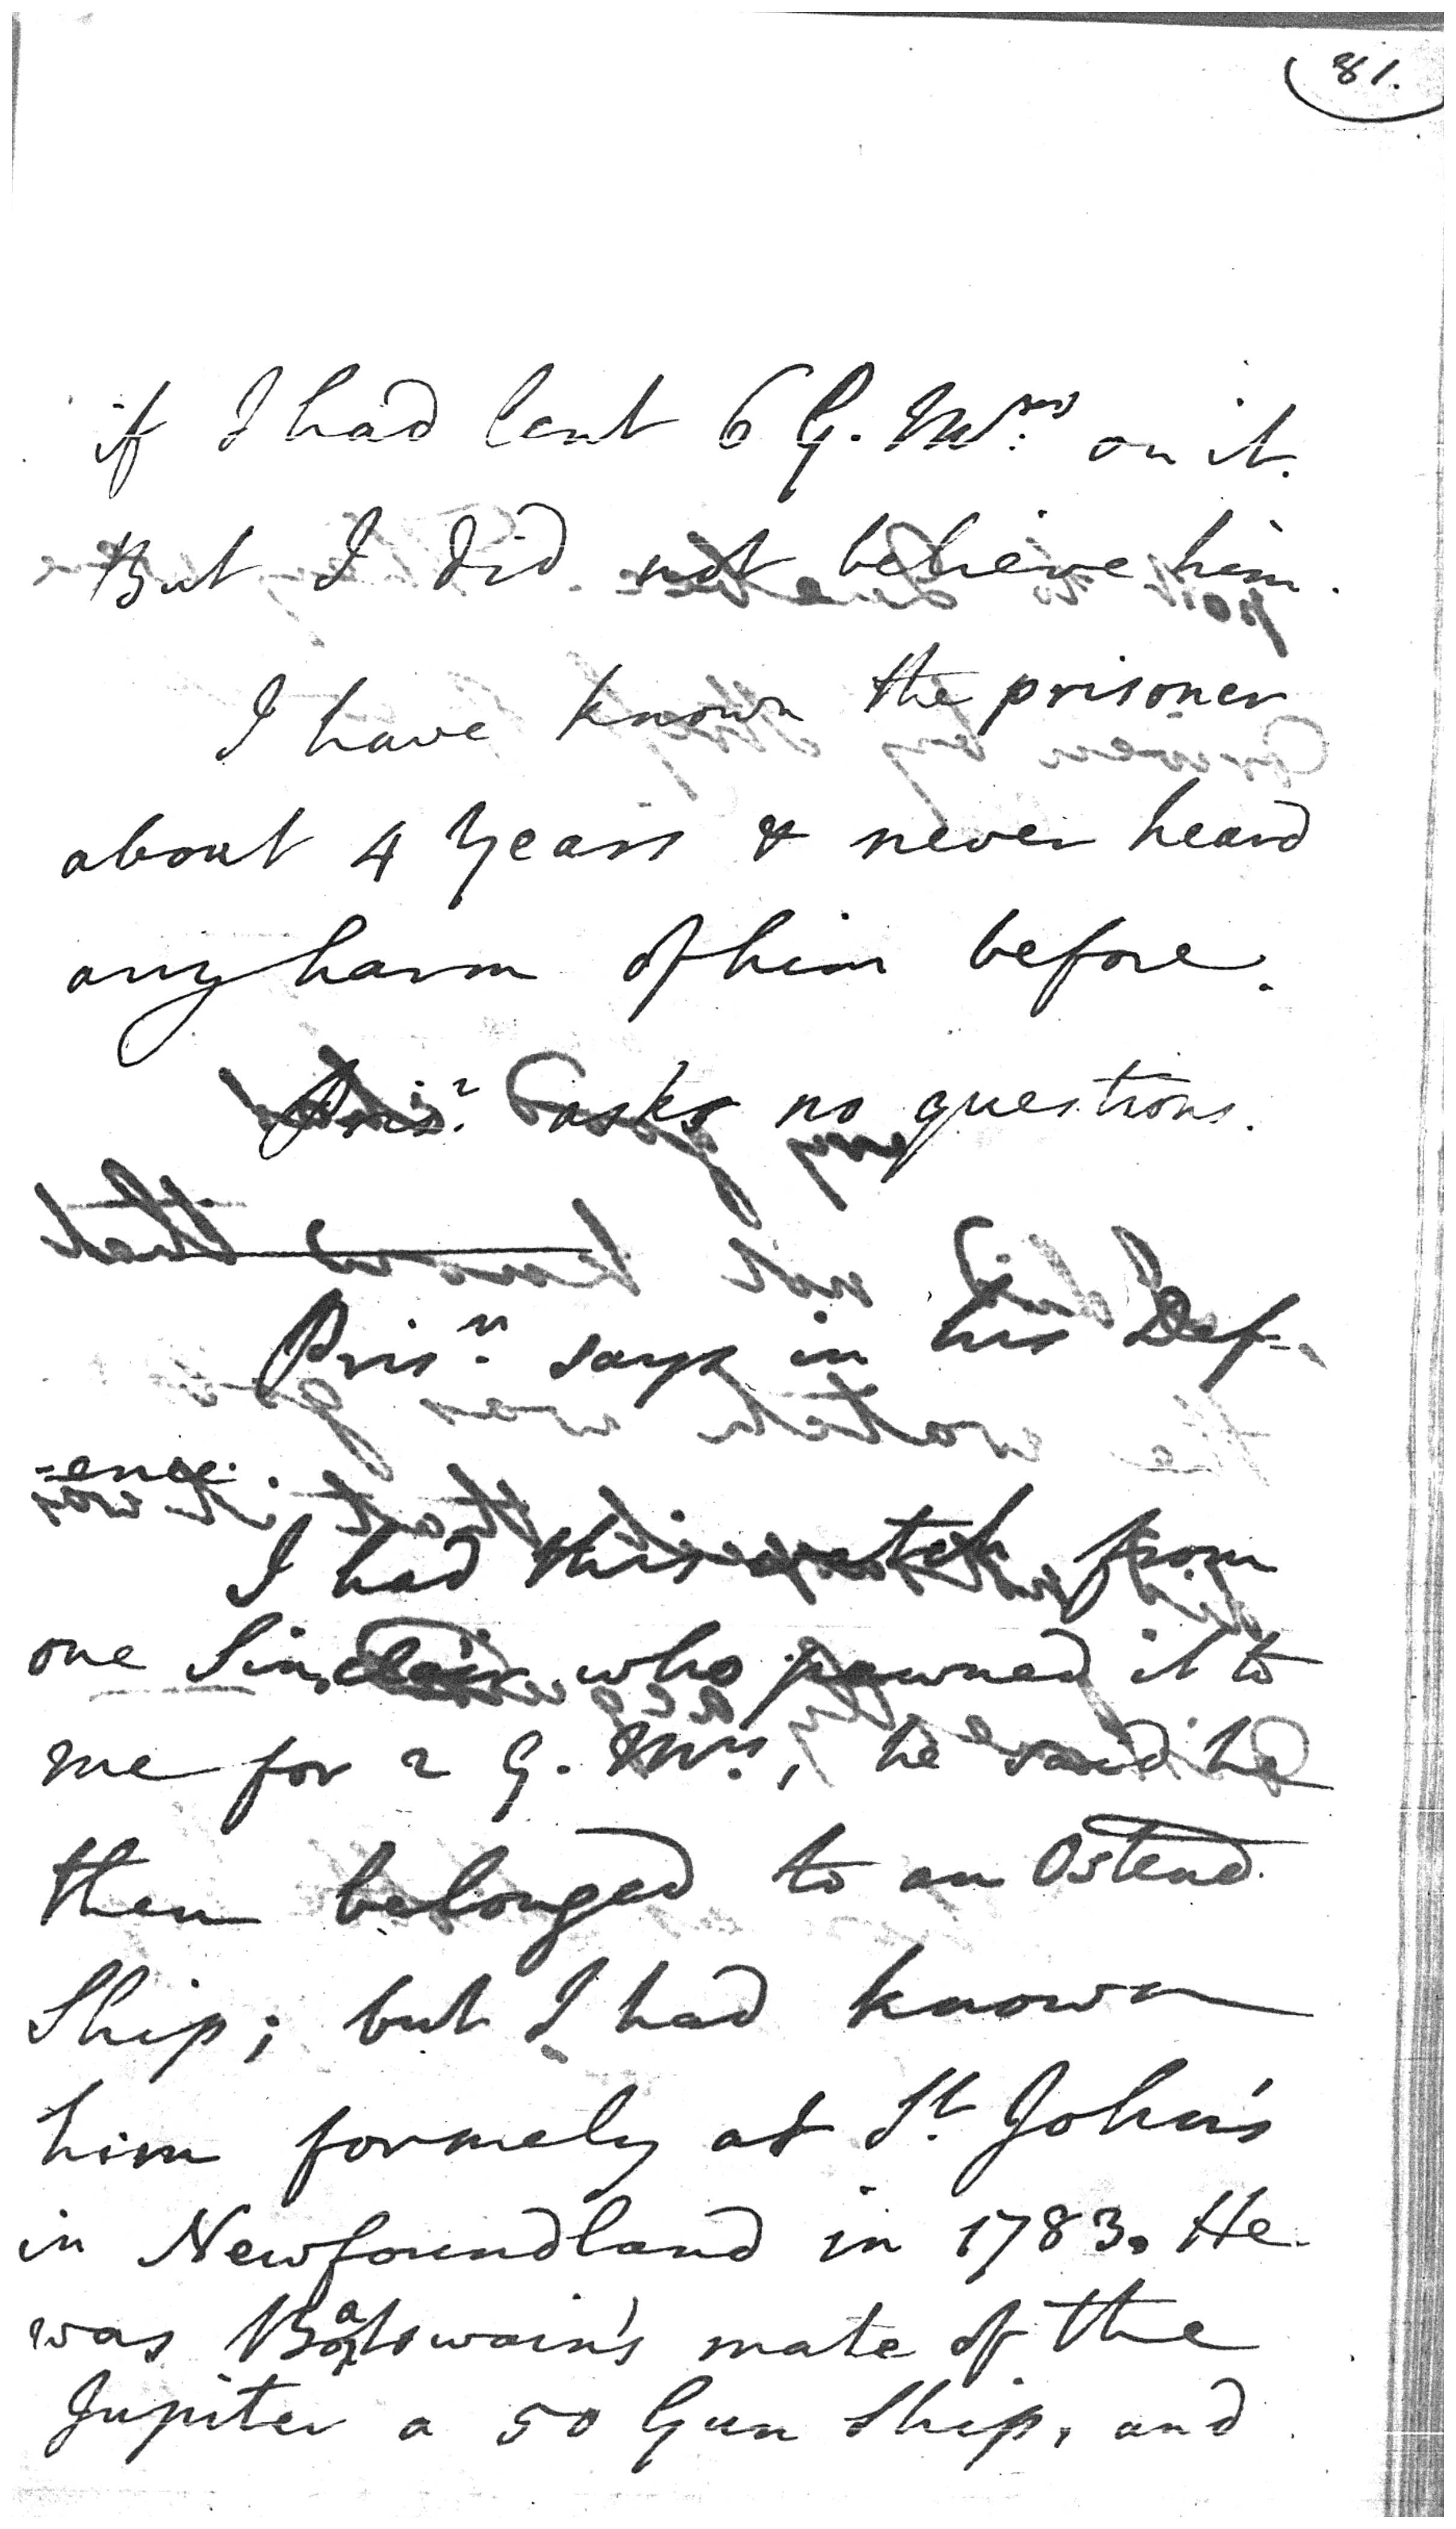 81.
if I had lent 6 G. Mrs. on it.
But I did not believe him.
I have known the prisoner
about 4 Years & never heard
any harm of him before.
Prisr. asks no questions.
Prisr. says in his Def-
-ence.
I had this watch from
one Sinclair who pawned it to
me for 2 G. Mrs., he said he
then belonged to an Ostend
Ship; but I had known
him formely at St. John's
in Newfoundland in 1783. He
was Boatswain's mate of the
Jupiter a 50 Gun Ship, and